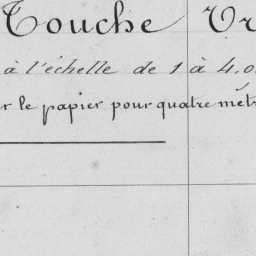 Touche Tr
à l'échelle de 1 à 4.0
r le papier pour quatre mèt